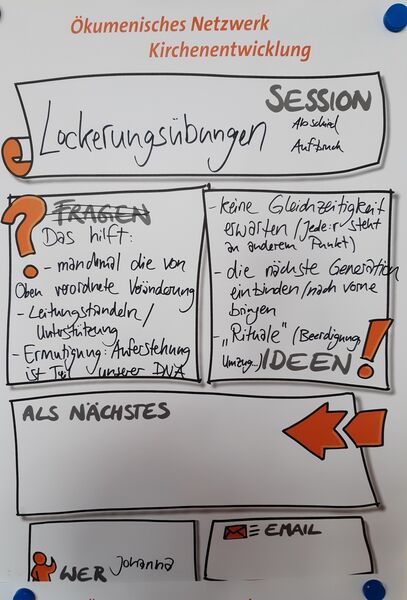 Ökumenisches Netzwerk
Kirchenentwicklung
SESSION
Lockerungsübungen
Abschied
Aufbruch
?
FRAGEN
Das hilft:
- manchmal die von
Oben verordnete Veränderung
- Leitungshandeln/
Unterstützung
- Ermutigung: Auferstehung
ist Teil unserer DNA
- keine Gleichzeitigkeit
erwarten (Jede:r steht
an anderem Punkt)
- die nächste Generation
einbinden/nach vorne
bringen
- „Rituale" (Beerdigung,
Umzug...)
IDEEN!
ALS NÄCHSTES
WER Johanna
EMAIL